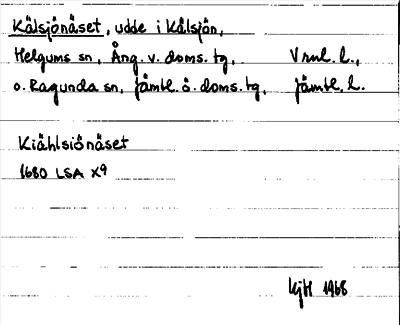 Kälsjönäset, udde i Kälsjön,
Helgums sn, Ång. v. doms. tg, Vrnl. l.,
o. Ragunda sn, Jämtl. ö. doms. tg, Jämtl. l.
Kiählsiönäset
1680 LSA X9
1968